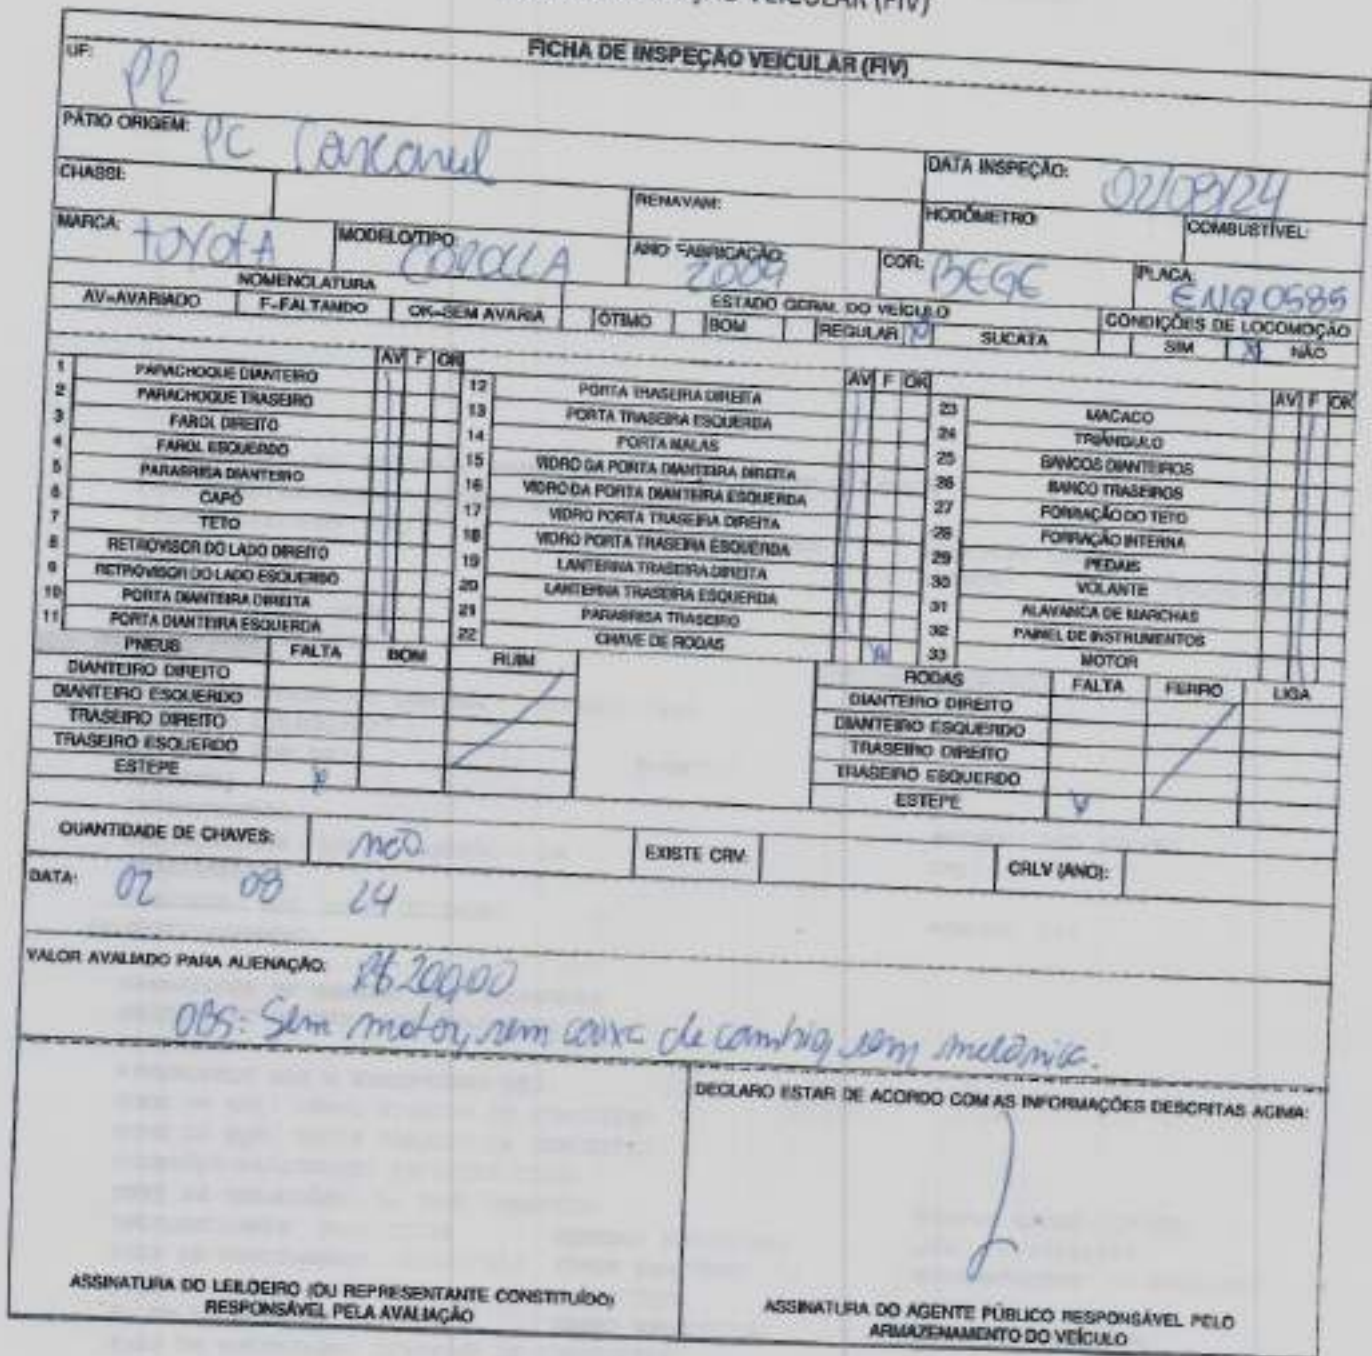 VEICULAR (FIV)
FICHA DE INSPEÇÃO VEICULAR (FIV)
UF: PR
PÁTIO ORIGEM: PC Cascavel
DATA INSPEÇÃO: 02/08/24
CHASSI:
RENAVAM:
HODÔMETRO:
COMBUSTÍVEL:
MARCA: TOYOTA
MODELO/TIPO: COROLLA
ANO FABRICAÇÃO: 2009
COR: BEGE
PLACA: ENQ 0585
NOMENCLATURA
ESTADO GERAL DO VEÍCULO
CONDIÇÕES DE LOCOMOÇÃO
AV=AVARIADO F=FALTANDO OK=SEM AVARIA ÓTIMO BOM REGULAR X SUCATA SIM X NÃO
AV F OK
1 PARACHOQUE DIANTEIRO
2 PARACHOQUE TRASEIRO
3 FAROL DIREITO
4 FAROL ESQUERDO
5 PARABRISA DIANTEIRO
6 CAPÔ
7 TETO
8 RETROVISOR DO LADO DIREITO
9 RETROVISOR DO LADO ESQUERDO
10 PORTA DIANTEIRA DIREITA
11 PORTA DIANTEIRA ESQUERDA
AV F OK
12 PORTA TRASEIRA DIREITA
13 PORTA TRASEIRA ESQUERDA
14 PORTA MALAS
15 VIDRO DA PORTA DIANTEIRA DIREITA
16 VIDRO DA PORTA DIANTEIRA ESQUERDA
17 VIDRO PORTA TRASEIRA DIREITA
18 VIDRO PORTA TRASEIRA ESQUERDA
19 LANTERNA TRASEIRA DIREITA
20 LANTERNA TRASEIRA ESQUERDA
21 PARABRISA TRASEIRO
22 CHAVE DE RODAS X
AV F OK
23 MACACO
24 TRIÂNGULO
25 BANCOS DIANTEIROS
26 BANCO TRASEIROS
27 FORRAÇÃO DO TETO
28 FORRAÇÃO INTERNA
29 PEDAIS
30 VOLANTE
31 ALAVANCA DE MARCHAS
32 PAINEL DE INSTRUMENTOS
33 MOTOR
PNEUS FALTA BOM RUIM
DIANTEIRO DIREITO
DIANTEIRO ESQUERDO
TRASEIRO DIREITO
TRASEIRO ESQUERDO
ESTEPE X
RODAS FALTA FERRO LIGA
DIANTEIRO DIREITO
DIANTEIRO ESQUERDO
TRASEIRO DIREITO
TRASEIRO ESQUERDO
ESTEPE X
QUANTIDADE DE CHAVES: não EXISTE CRV: CRLV (ANO):
DATA: 02 08 24
VALOR AVALIADO PARA ALIENAÇÃO: R$ 200,00
OBS: Sem motor, sem caixa de cambio, sem mecânica.
DECLARO ESTAR DE ACORDO COM AS INFORMAÇÕES DESCRITAS ACIMA:
ASSINATURA DO LEILOEIRO (OU REPRESENTANTE CONSTITUÍDO)
RESPONSÁVEL PELA AVALIAÇÃO
ASSINATURA DO AGENTE PÚBLICO RESPONSÁVEL PELO
ARMAZENAMENTO DO VEÍCULO